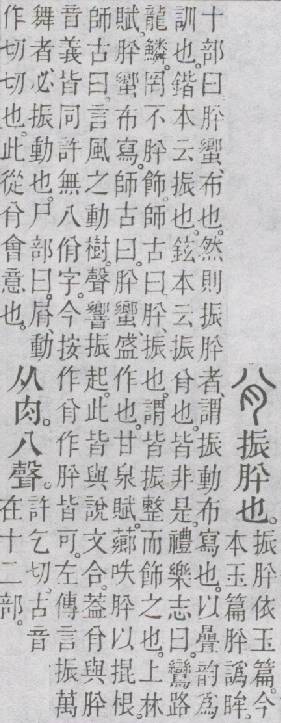 振肸也。
振肸依玉篇。今
本玉篇肸譌眸。
十部曰肸蠁布也。然則振肸者、謂振動布寫也。以疊韵爲
訓也。鍇本云振也。鉉本云振也。皆非是。禮樂志曰。鸞路
龍鱗。罔不肸飾。師古曰。肸、振也。謂皆振整而飾之也。上林
賦。肸蠁布寫。師古曰。肸蠁盛作也。甘泉賦。薌呹肸以掍根。
師古曰。言風之動樹。聲響振起。此皆與說文合。葢與肸
音義皆同。許無八佾字。今按作作肸皆可。左傳言振萬
舞者必振動也。尸部曰。屑、動
作切切也。此從會意也。
从肉。八聲。
許乞切。古音
在十二部。